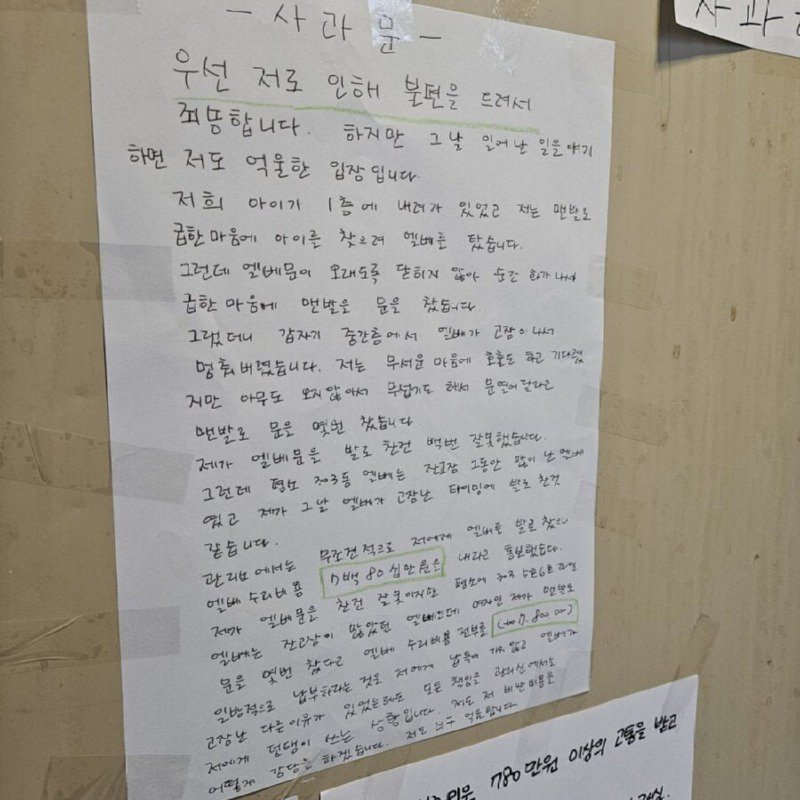 사과
- 사 과 문 -
우선 저로 인해 불편을 드려서
죄송합니다. 하지만 그날 일어난 일을 얘기
하면 저도 억울한 입장입니다.
저희 아이가 1층에 내려가 있었고 저는 맨발로
급한 마음에 아이를 찾으려 엘베를 탔습니다.
그런데 엘베문이 오래도록 닫히지 않아 순간 화가 나서
급한 마음에 맨발로 문을 찼습니다.
그랬더니 갑자기 중간층에서 엘베가 고장이 나서
멈춰버렸습니다. 저는 무서운 마음에 호출도 하고 기다렸
지만 아무도 오지 않아서 무섭기도 해서 문열어달라고
맨발로 문을 몇번 찼습니다.
제가 엘베문을 발로 찬건 백번 잘못했습니다.
그런데 평소 303동 엘베는 잔고장 그동안 많이 난 엘베
였고 제가 그날 엘베가 고장난 타이밍에 발로 찬것
같습니다.
관리소에서는 무조건적으로 저에게 엘베를 발로 찼으니
엘베 수리비용 7백 80십만원을 내라고 통보했습니다.
제가 엘베문을 찬건 잘못이지만 평소에 303 5호6호라인
엘베는 잔고장이 많았던 엘베인데 여자인 제가 맨발로
문을 몇번 찼다고 엘베 수리비용 전부를 (7.800.000)
일방적으로 납부하라는 것은 저에게 납득이 가지 않고 엘베가
고장난 다른이유가 있었는데도 모든 책임을 관리실에서도
저에게 덤탱이 쓰는 상황입니다. 저도 저 비싼 비용을
어떻게 감당을 하겠습니다. 저도 너무 억울합니다.
780만원 이상의 고통을 받고